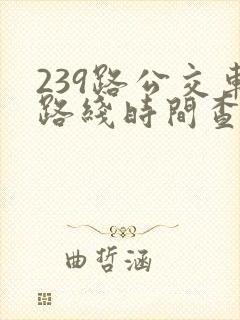 239路公交車
路綫時間查
曲哲涵